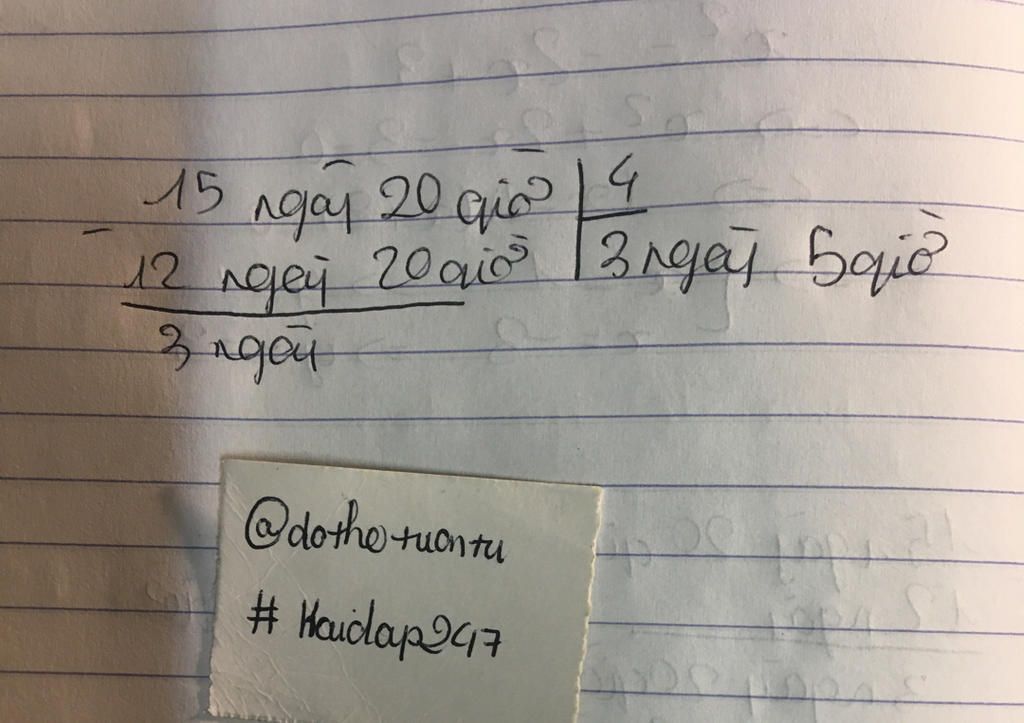 15 ngày 20 giờ | 4
- 12 ngày 20 giờ | 3 ngày 5 giờ
3 ngày
@dothetuantu
# Hoidap247